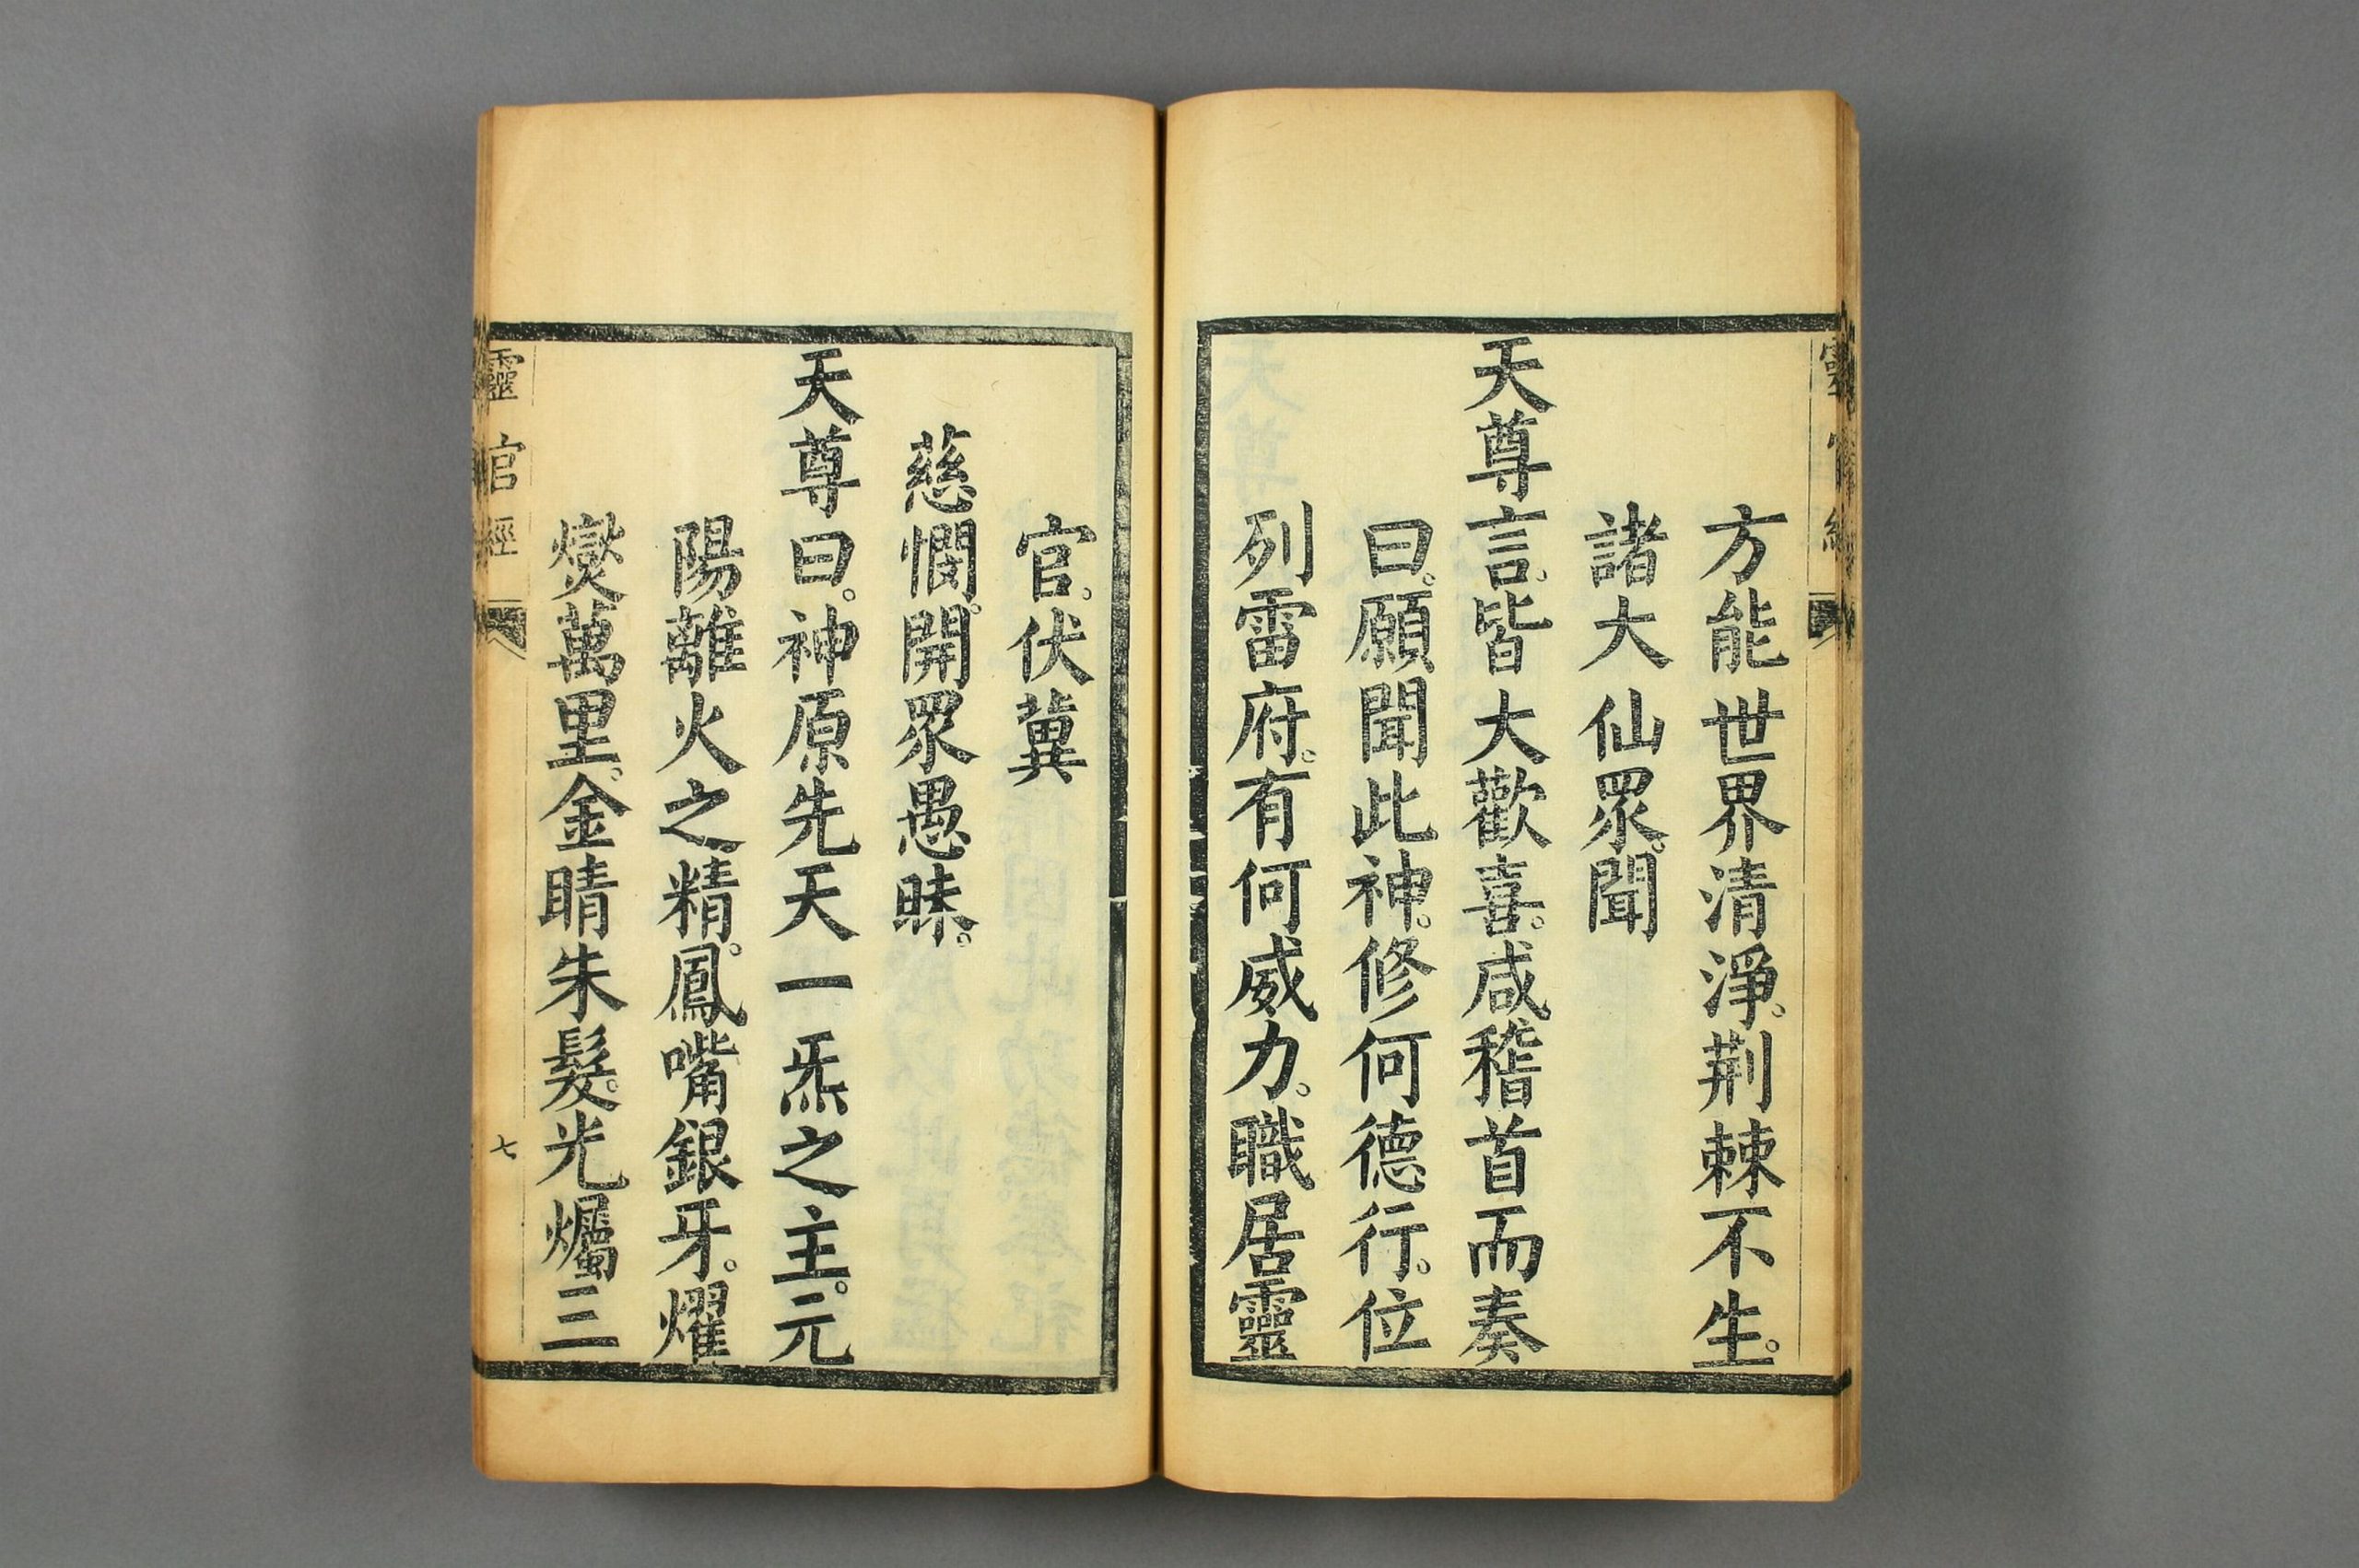 方能世界清淨。荆棘不生。
諸大仙眾。聞
天尊言。皆大歡喜。咸稽首而奏
曰。願聞此神。修何德行。位
列雷府。有何威力。職居靈
官。伏冀
慈憫。開眾愚昧。
天尊曰。神原先天一炁之主。元
陽離火之精。鳳嘴銀牙。耀
爕萬里。金睛朱髮。光爥三
靈官經
七